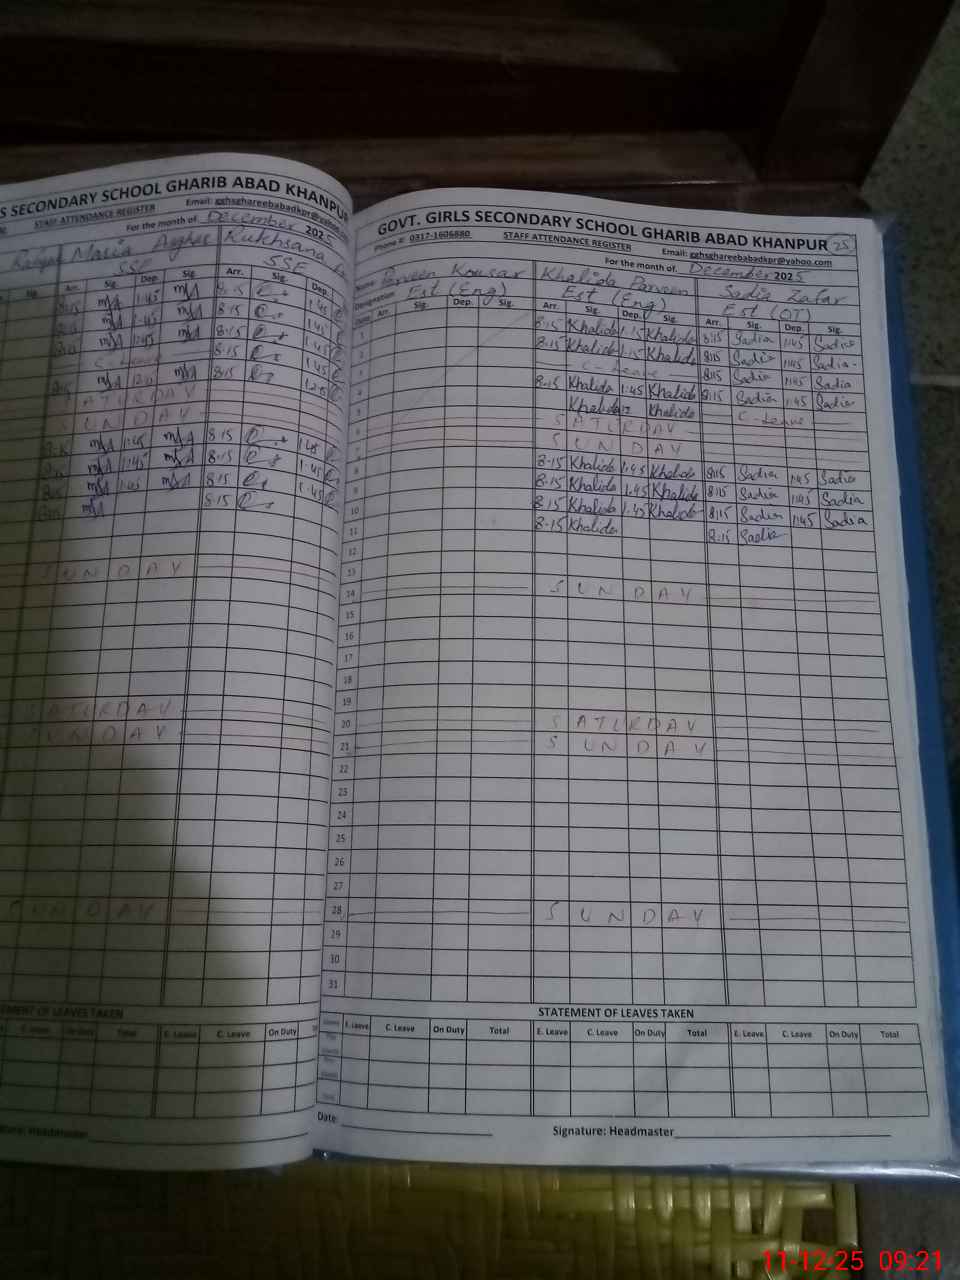 S SECONDARY SCHOOL GHARIB ABAD KHANPUR
STAFF ATTENDANCE REGISTER Email: gghsghareebabadkpr@yahoo.com
For the month of December 2025
Maria Asghar Rukhsana
SSE SSE
Arr. Sig. Dep. Sig. Arr. Sig. Dep.
8:15 1:45 8:15 1:45
8:15 1:45 8:15 1:45
8:15 1:45 8:15 1:45
C-Leave 8:15 1:45
8:15 8:15
SATURDAY
SUNDAY
1:45 8:15 1:45
1:45 8:15 1:45
1:45 8:15 1:45
8:15
SUNDAY
SATURDAY
SUNDAY
SUNDAY
STATEMENT OF LEAVES TAKEN
E. Leave C. Leave On Duty Total E. Leave C. Leave On Duty
Signature: Headmaster
GOVT. GIRLS SECONDARY SCHOOL GHARIB ABAD KHANPUR 25
Phone #: 0317-1606880 STAFF ATTENDANCE REGISTER Email: gghsghareebabadkpr@yahoo.com
For the month of. December 2025
Name Parveen Kousar Khalida Parveen Sadia Zafar
Designation Est (Eng) Est (Eng) Est (OT)
Date Arr. Sig. Dep. Sig. Arr. Sig. Dep. Sig. Arr. Sig. Dep. Sig.
1 8:15 Khalida 1:15 Khalida 8:15 Sadia 1:45 Sadia
2 8:15 Khalida 1:15 Khalida 8:15 Sadia 1:45 Sadia
3 C-Leave 8:15 Sadia 1:45 Sadia
4 8:15 Khalida 1:45 Khalida 8:15 Sadia 1:45 Sadia
5 Khalida 12 Khalida C-Leave
6 SATURDAY
7 SUNDAY
8 8-15 Khalida 1:45 Khalida 8:15 Sadia 1:45 Sadia
9 8:15 Khalida 1:45 Khalida 8:15 Sadia 1:45 Sadia
10 8:15 Khalida 1:45 Khalida 8:15 Sadia 1:45 Sadia
11 8-15 Khalida 8:15 Sadia
12
13
14 SUNDAY
15
16
17
18
19
20 SATURDAY
21 SUNDAY
22
23
24
25
26
27
28 SUNDAY
29
30
31
STATEMENT OF LEAVES TAKEN
E. Leave C. Leave On Duty Total E. Leave C. Leave On Duty Total E. Leave C. Leave On Duty Total
Date:
Signature: Headmaster
11-12-25 09:21